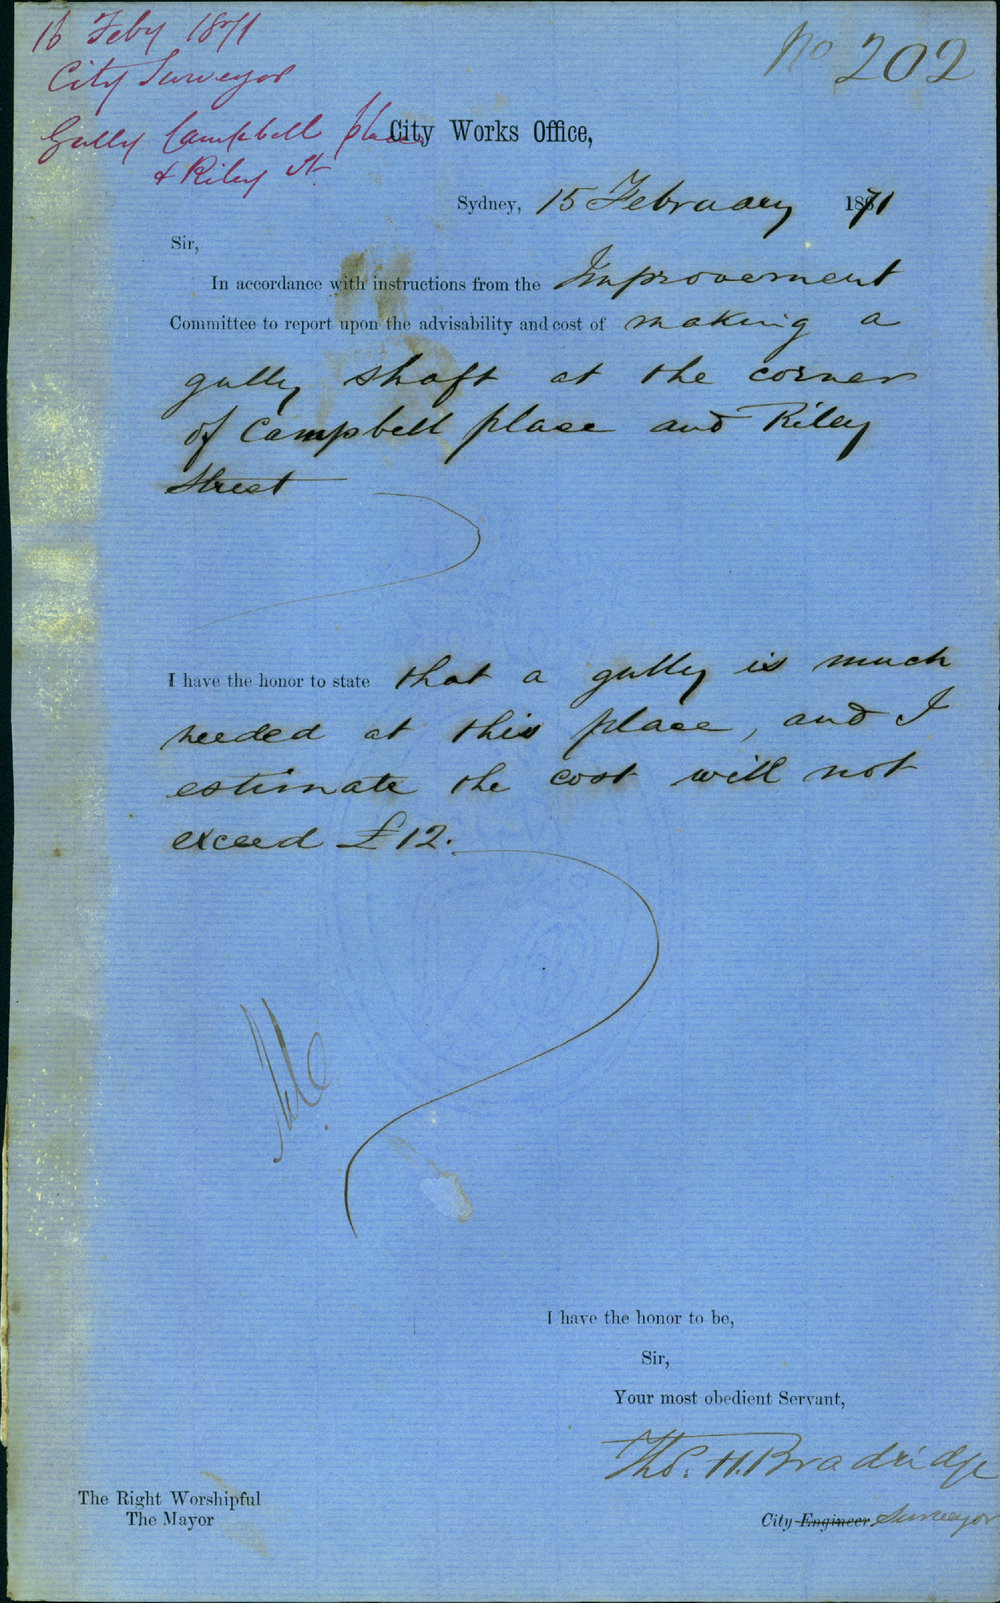 16 Feby 1871
City Surveyor
Gully Campbell place
& Riley St
No 202
City Works Office,
Sydney, 15 February 1871
Sir,
In accordance with instructions from the Improvement
Committee to report upon the advisability and cost of making a
gully shaft at the corner
of Campbell place and Riley
Street
I have the honor to state that a gully is much
needed at this place, and I
estimate the cost will not
exceed £12.
I have the honor to be,
Sir,
Your most obedient Servant,
Thos. H. Bradridge
City Engineer Surveyor
The Right Worshipful
The Mayor